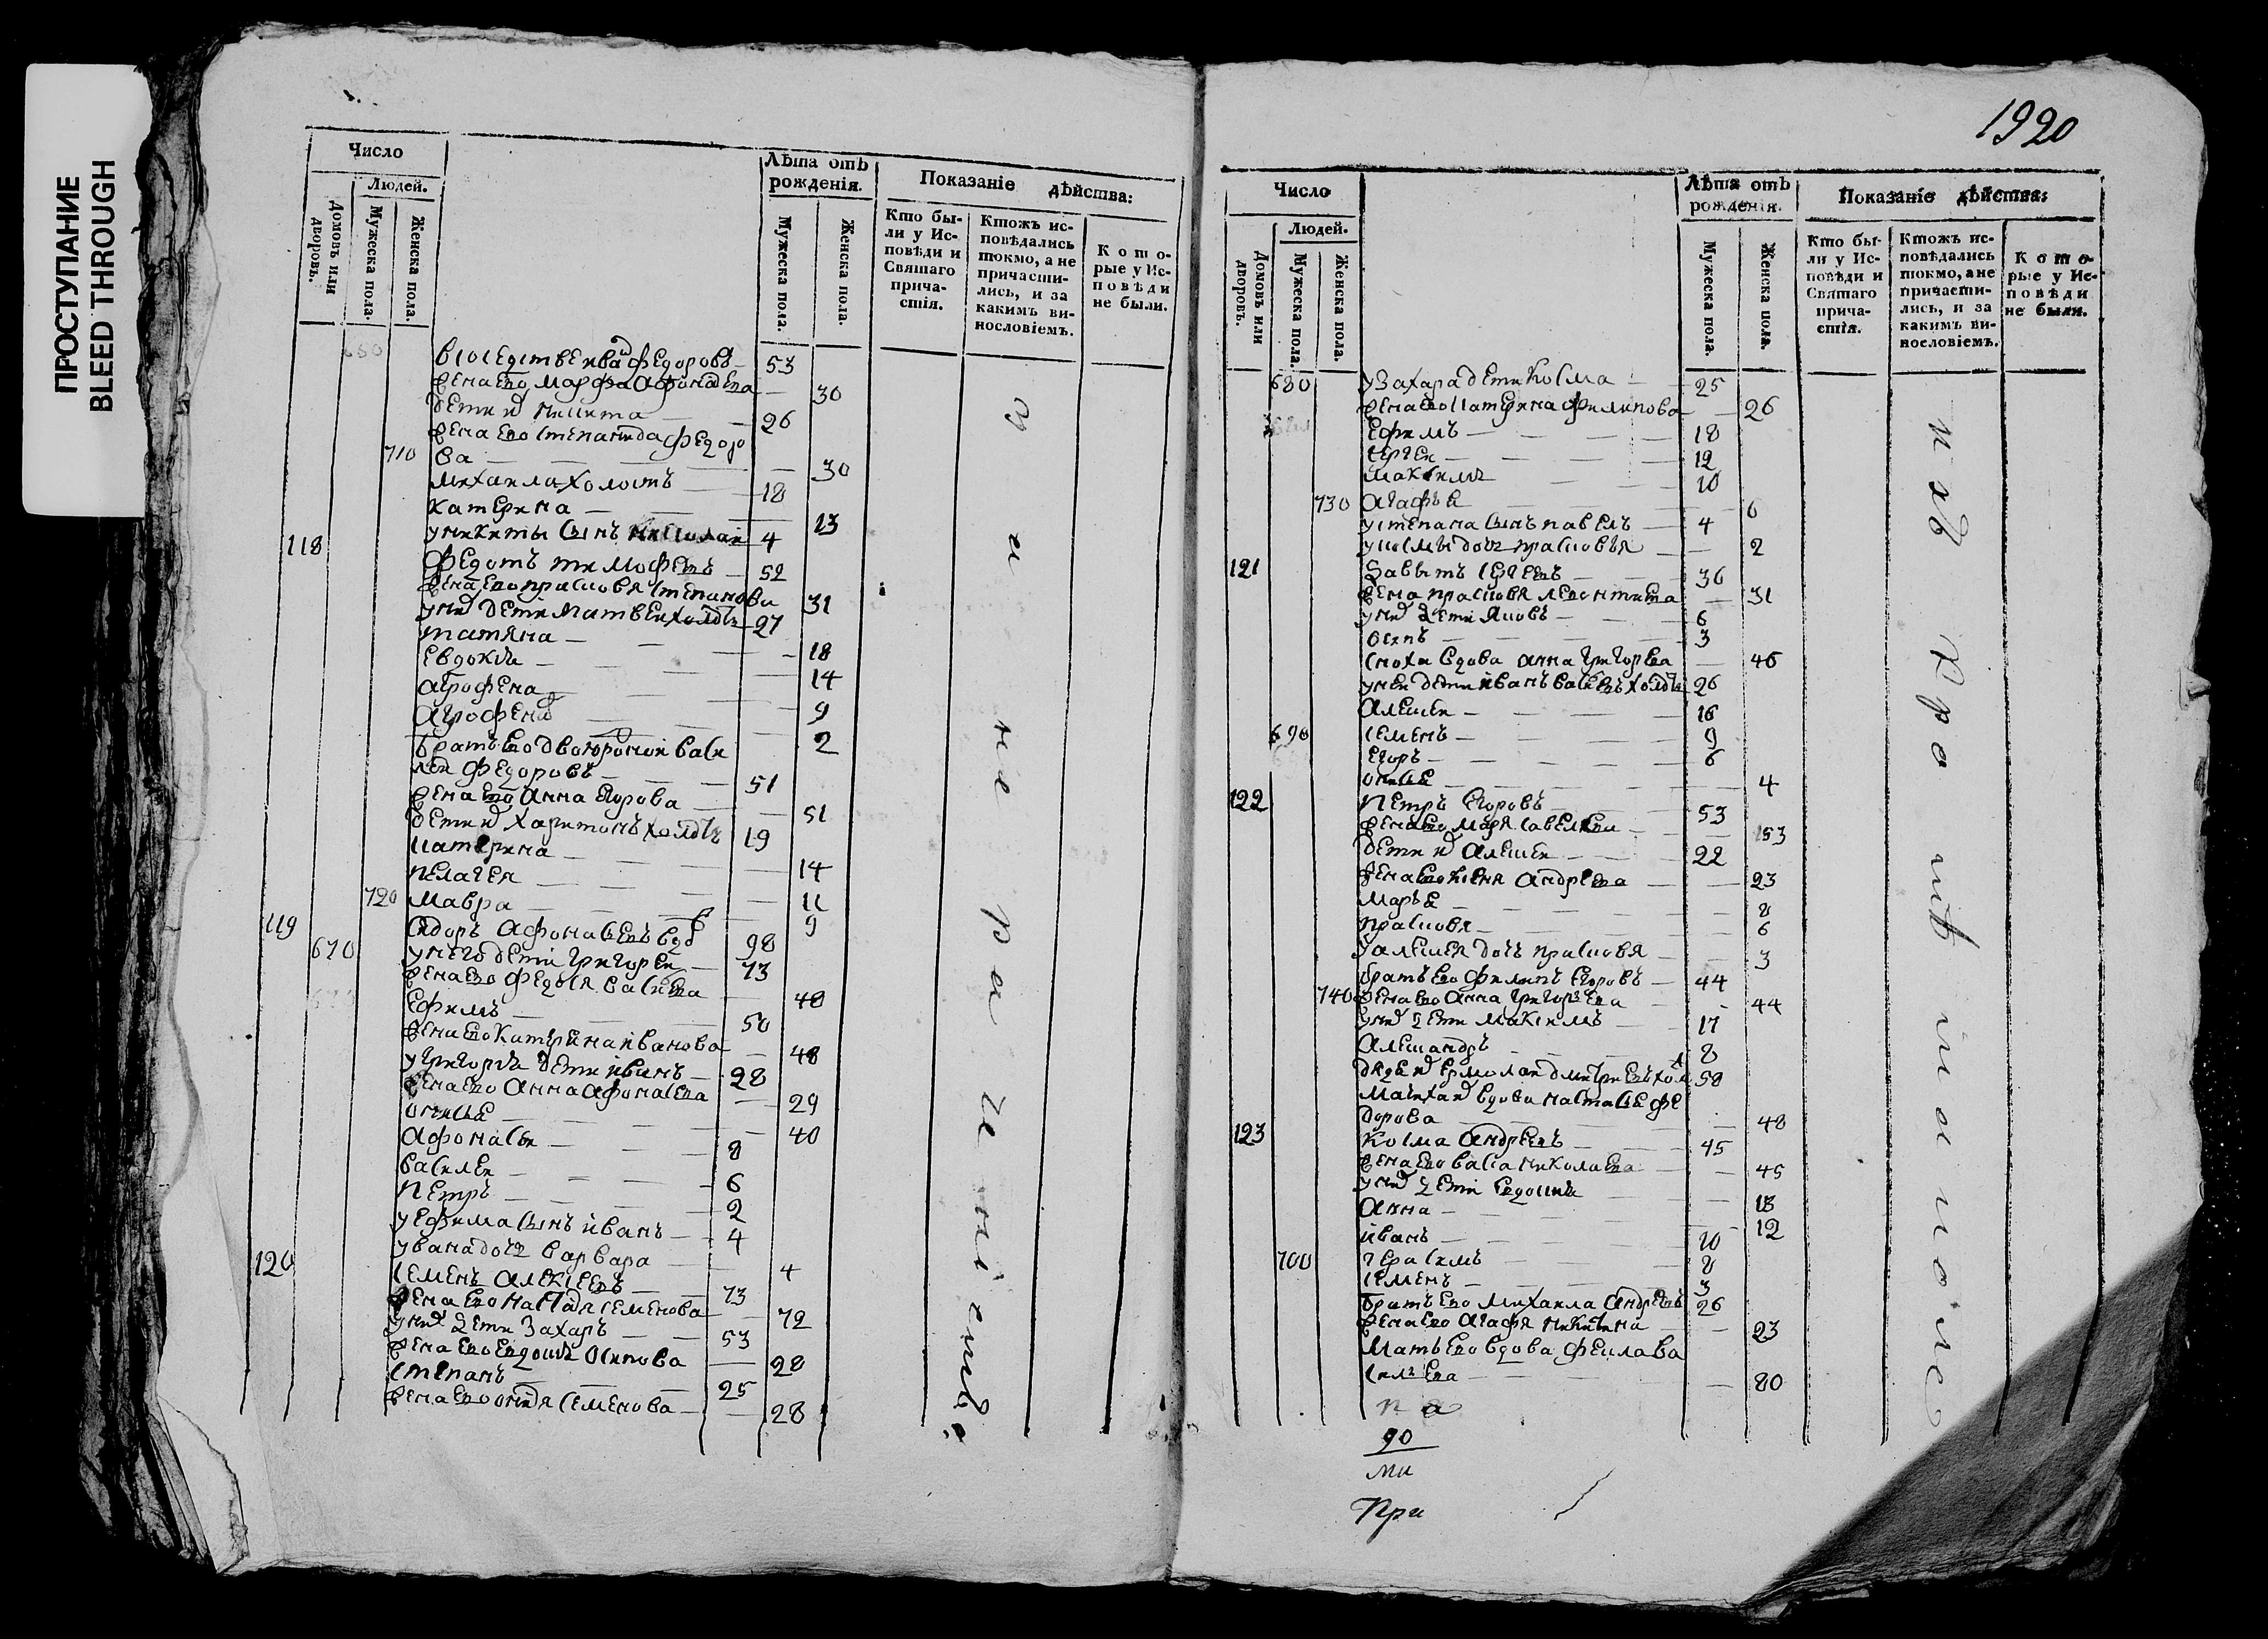 ПРОСТУПАНИЕ
BLEED THROUGH
Число
Людей.
Домовъ или дворовъ.
Мужеска пола.
Женска пола.
Лѣта отъ рожденія.
Мужеска пола.
Женска пола.
Показаніе дѣйства:
Кто бы-
ли у Ис-
повѣди и
Святаго
прича-
стія.
Ктожъ ис-
повѣдались
токмо, а не
причасти-
лись, и за
какимъ ви-
нословіемъ.
Кото-
рые у Ис-
повѣди
не были.
федоровъ 53
жена ево марфа афонасева 30
дети их никита 26
жена ево степанида федоро
710 ва 30
михаила холостъ 18
катерина 13
у никиты сынъ николаи 4
118 федотъ тимофеевъ 52
жена ево прасковя степанова 31
у них дети матвеи холостъ 27
татяна 18
евдокия 14
агрофена 9
агрофена 2
братъ ево двоюроднои васи
леи федоровъ 51
жена ево анна егорова 51
дети их харитонъ холостъ 19
катерина 14
пелагея 11
720 мавра 9
119 сидоръ афонасьевъ вдов 98
670 у него дети григореи 73
жена ево федося васильева 48
ефимъ 50
жена ево катерина иванова 48
у григорья дети иванъ 28
жена ево анна афонасева 29
аксинья 40
афонасеи 8
василеи 6
петръ 2
у ефима сынъ иванъ 4
у ивана дочь варвара 4
120 семенъ алексеевъ 73
жена ево настася семенова 72
у них дети захаръ 53
жена ево евдокия осипова 28
степанъ 25
жена ево семенова 28
о н и н е р а ч е н і е м ъ.
1920
Число
Людей.
Домовъ или дворовъ.
Мужеска пола.
Женска пола.
Лѣта отъ рожденія.
Мужеска пола.
Женска пола.
Показаніе дѣйства:
Кто бы-
ли у Ис-
повѣди и
Святаго
прича-
стія.
Ктожъ ис-
повѣдались
токмо, а не
причасти-
лись, и за
какимъ ви-
нословіемъ.
Кото-
рые у Ис-
повѣди
не были.
680 у захара дети косма 25
жена ево катерина филипова 26
ефимъ 18
сергеи 12
максимъ 10
730 агафья 6
у степана сынъ павелъ 4
у космы дочь прасковья 2
121 савытъ сергеевъ 36
жена прасковя леонтиева 31
у них дети яковъ 6
осипъ 3
сноха вдова анна григорева 46
у неи дети иванъ васильевъ холостъ 26
алексеи 16
690 семенъ 9
егоръ 6
аксинья 4
122 петръ егоровъ 53
жена ево маря савельева 53
дети их алексеи 22
жена ево ксеня андреева 23
марья 8
прасковя 6
у алексея дочь прасковя 3
братъ ево филипъ егоровъ 44
740 жена ево анна григорьева 44
у них дети максимъ 17
александръ 8
дядя их ермолаи дмитриевъ холо 58
мать их вдова настасья фе
дорова 48
123 косма андреевъ 45
жена ево васса николаева 45
у них дети евдокия 18
анна 12
иванъ 10
700 герасимъ 8
семенъ 3
братъ ево михаила андреевъ 26
жена ево агафя никитина 23
мать ево вдова
сильева 80
90
ми
При